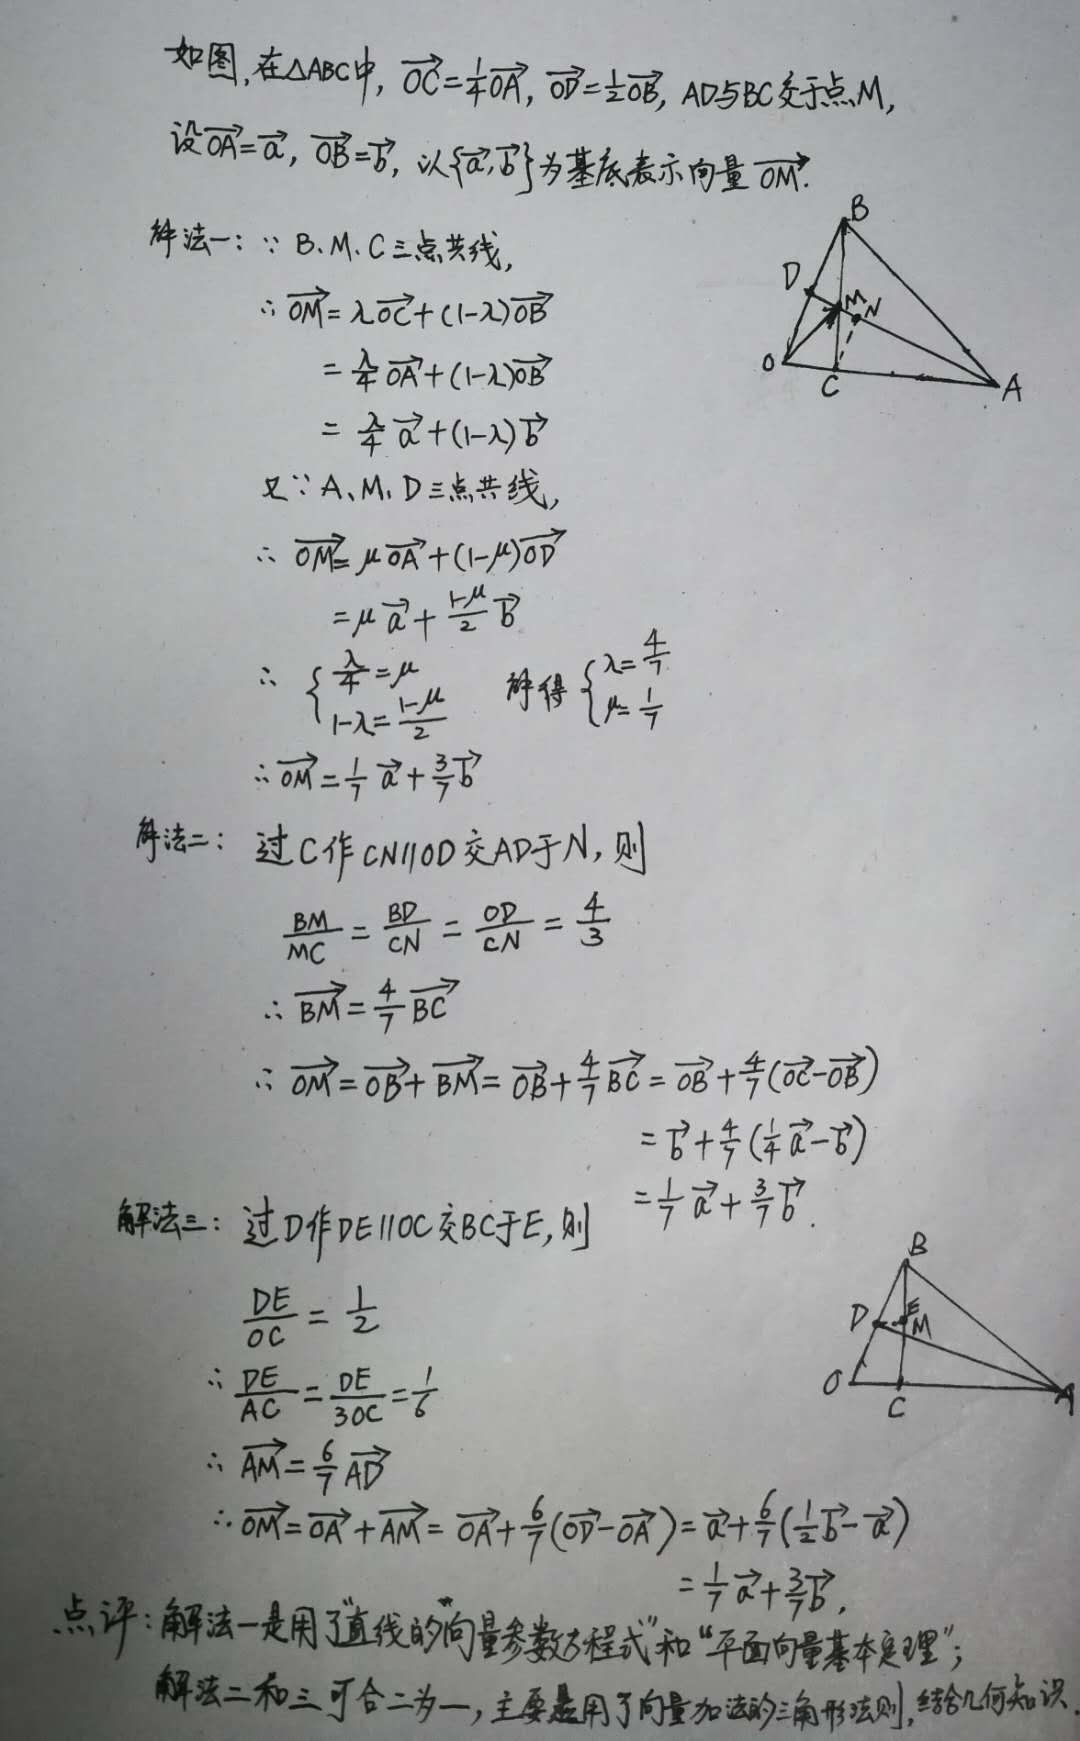 如图,在△ABC中, $\overrightarrow{OC}=\frac{1}{4}\overrightarrow{OA}$, $\overrightarrow{OD}=\frac{1}{2}\overrightarrow{OB}$, AD与BC交于点M,
设$\overrightarrow{OA}=\vec{a}$, $\overrightarrow{OB}=\vec{b}$, 以{$\vec{a}$,$\vec{b}$}为基底表示向量$\overrightarrow{OM}$.
解法一: ∵ B、M、C三点共线,
∴ $\overrightarrow{OM}=\lambda\overrightarrow{OC}+(1-\lambda)\overrightarrow{OB}$
$=\frac{\lambda}{4}\overrightarrow{OA}+(1-\lambda)\overrightarrow{OB}$
$=\frac{\lambda}{4}\vec{a}+(1-\lambda)\vec{b}$
又∵ A、M、D三点共线,
∴ $\overrightarrow{OM}=\mu\overrightarrow{OA}+(1-\mu)\overrightarrow{OD}$
$=\mu\vec{a}+\frac{1-\mu}{2}\vec{b}$
∴ $\begin{cases}\frac{\lambda}{4}=\mu\\1-\lambda=\frac{1-\mu}{2}\end{cases}$ 解得 $\begin{cases}\lambda=\frac{4}{7}\\\mu=\frac{1}{7}\end{cases}$
∴ $\overrightarrow{OM}=\frac{1}{7}\vec{a}+\frac{3}{7}\vec{b}$
B
D
M
N
O
C
A
解法二: 过C作CN∥OD交AD于N, 则
$\frac{BM}{MC}=\frac{BD}{CN}=\frac{OD}{CN}=\frac{4}{3}$
∴ $\overrightarrow{BM}=\frac{4}{7}\overrightarrow{BC}$
∴ $\overrightarrow{OM}=\overrightarrow{OB}+\overrightarrow{BM}=\overrightarrow{OB}+\frac{4}{7}\overrightarrow{BC}=\overrightarrow{OB}+\frac{4}{7}(\overrightarrow{OC}-\overrightarrow{OB})$
$=\vec{b}+\frac{4}{7}(\frac{1}{4}\vec{a}-\vec{b})$
$=\frac{1}{7}\vec{a}+\frac{3}{7}\vec{b}$.
解法三: 过D作DE∥OC交BC于E, 则
$\frac{DE}{OC}=\frac{1}{2}$
∴ $\frac{DE}{AC}=\frac{DE}{3OC}=\frac{1}{6}$
∴ $\overrightarrow{AM}=\frac{6}{7}\overrightarrow{AD}$
∴ $\overrightarrow{OM}=\overrightarrow{OA}+\overrightarrow{AM}=\overrightarrow{OA}+\frac{6}{7}(\overrightarrow{OD}-\overrightarrow{OA})=\vec{a}+\frac{6}{7}(\frac{1}{2}\vec{b}-\vec{a})$
$=\frac{1}{7}\vec{a}+\frac{3}{7}\vec{b}$.
B
D
E
M
O
C
A
点评: 解法一是用了“直线的“向量参数方程式”和“平面向量基本定理”;
解法二和三可合二为一, 主要是用了向量加法的三角形法则, 结合几何知识.